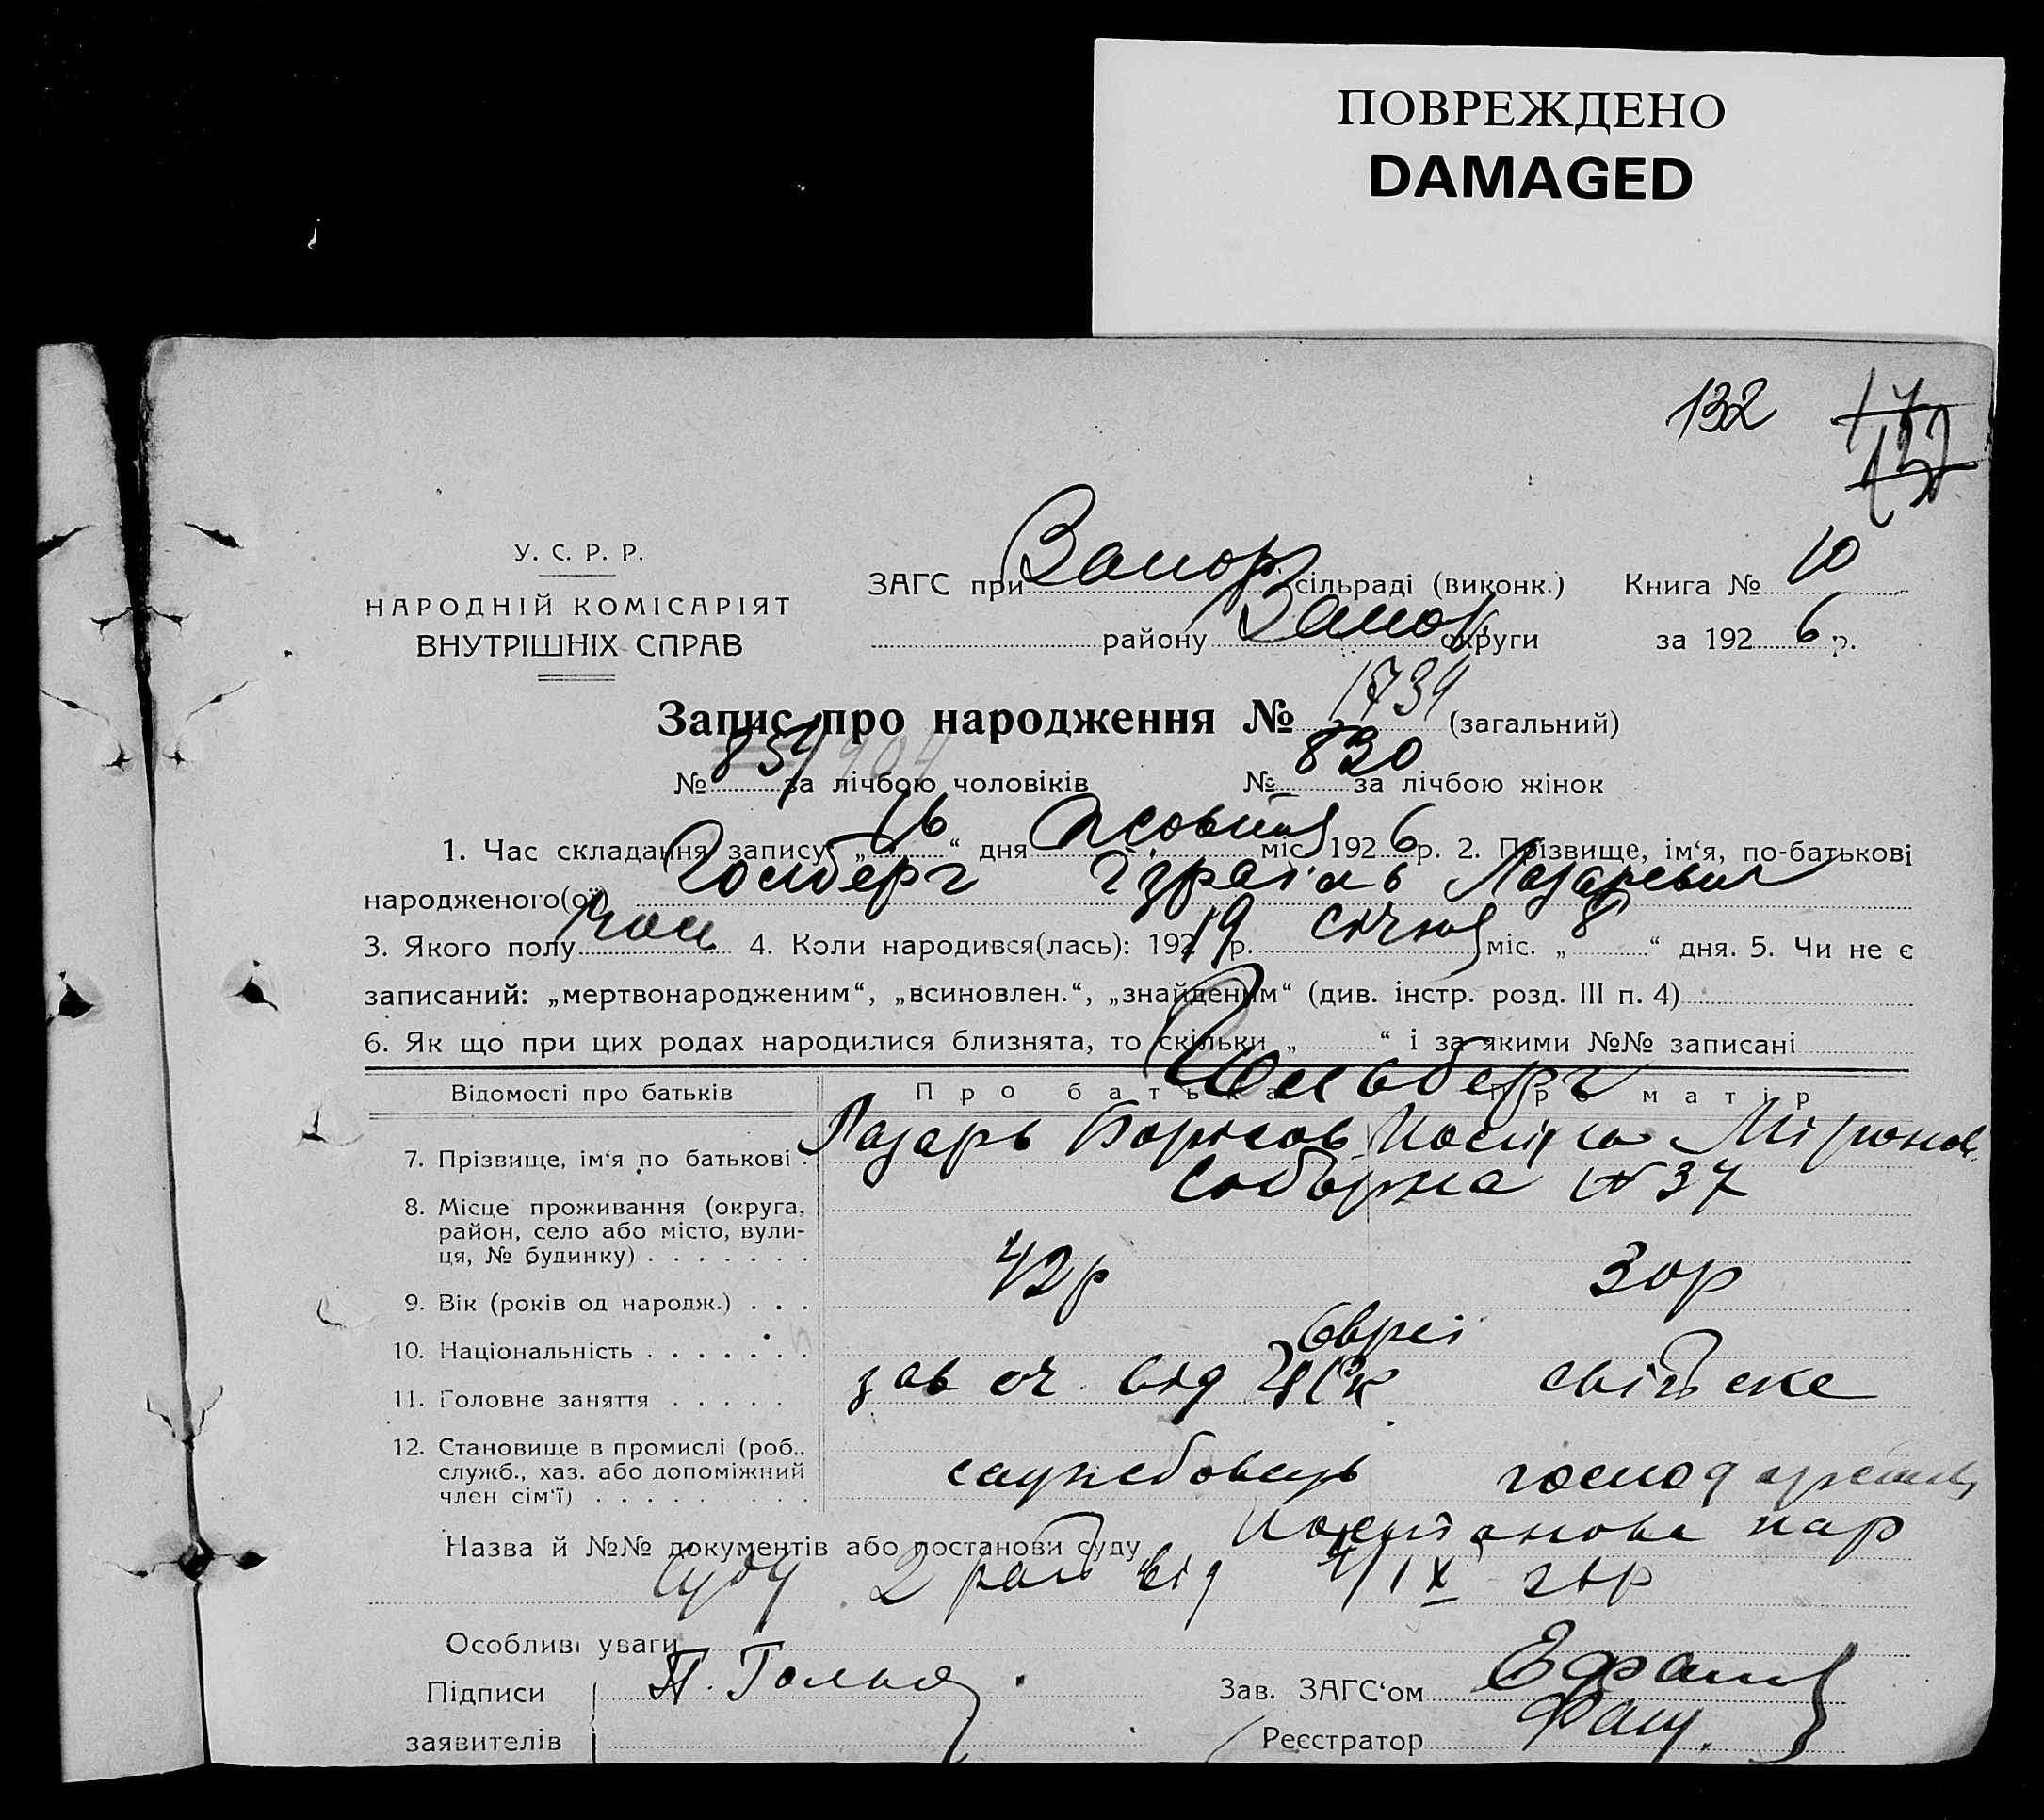 ПОВРЕЖДЕНО
DAMAGED
132
У. С. Р. Р.
НАРОДНІЙ КОМІСАРІЯТ
ВНУТРІШНІХ СПРАВ
ЗАГС при Запор. сільраді (виконк.) Книга № 10
району Запор. округи за 1926 р.
Запис про народження № 1734 (загальний)
№ 904 за лічбою чоловіків № 830 за лічбою жінок
1. Час складання запису „16“ дня жовтня міс. 1926 р. 2. Прізвище, ім‘я, по-батькові
народженого(ої) Гольберг Ізраіль Лазаревич
3. Якого полу чол 4. Коли народився(лась): 19219 р. січня міс. „8“ дня. 5. Чи не є
записаний: „мертвонародженим“, „всиновлен.“, „знайденим“ (див. інстр. розд. III п. 4)
6. Як що при цих родах народилися близнята, то скільки „ “ і за якими №№ записані
Відомості про батьків Про батька Про матір
Гольберг
7. Прізвище, ім‘я по батькові . Лазарь Борисов. Міронов.
8. Місце проживання (округа,
район, село або місто, вули-
ця, № будинку) . . . . . . . Соборна № 37
9. Вік (років од народж.) . . . 42 р 30 р
10. Національність . . . . . . . Євреі
11. Головне заняття . . . . . зав від
12. Становище в промислі (роб..
служб., хаз. або допоміжний
член сім‘ї) . . . . . . . . службовець господарство
Назва й №№ документів або постанови суду Постанова нар
суду 2 рай від /IX 26р
Особливі уваги
Підписи П. Гольд Зав. ЗАГС‘ом
заявителів Реєстратор